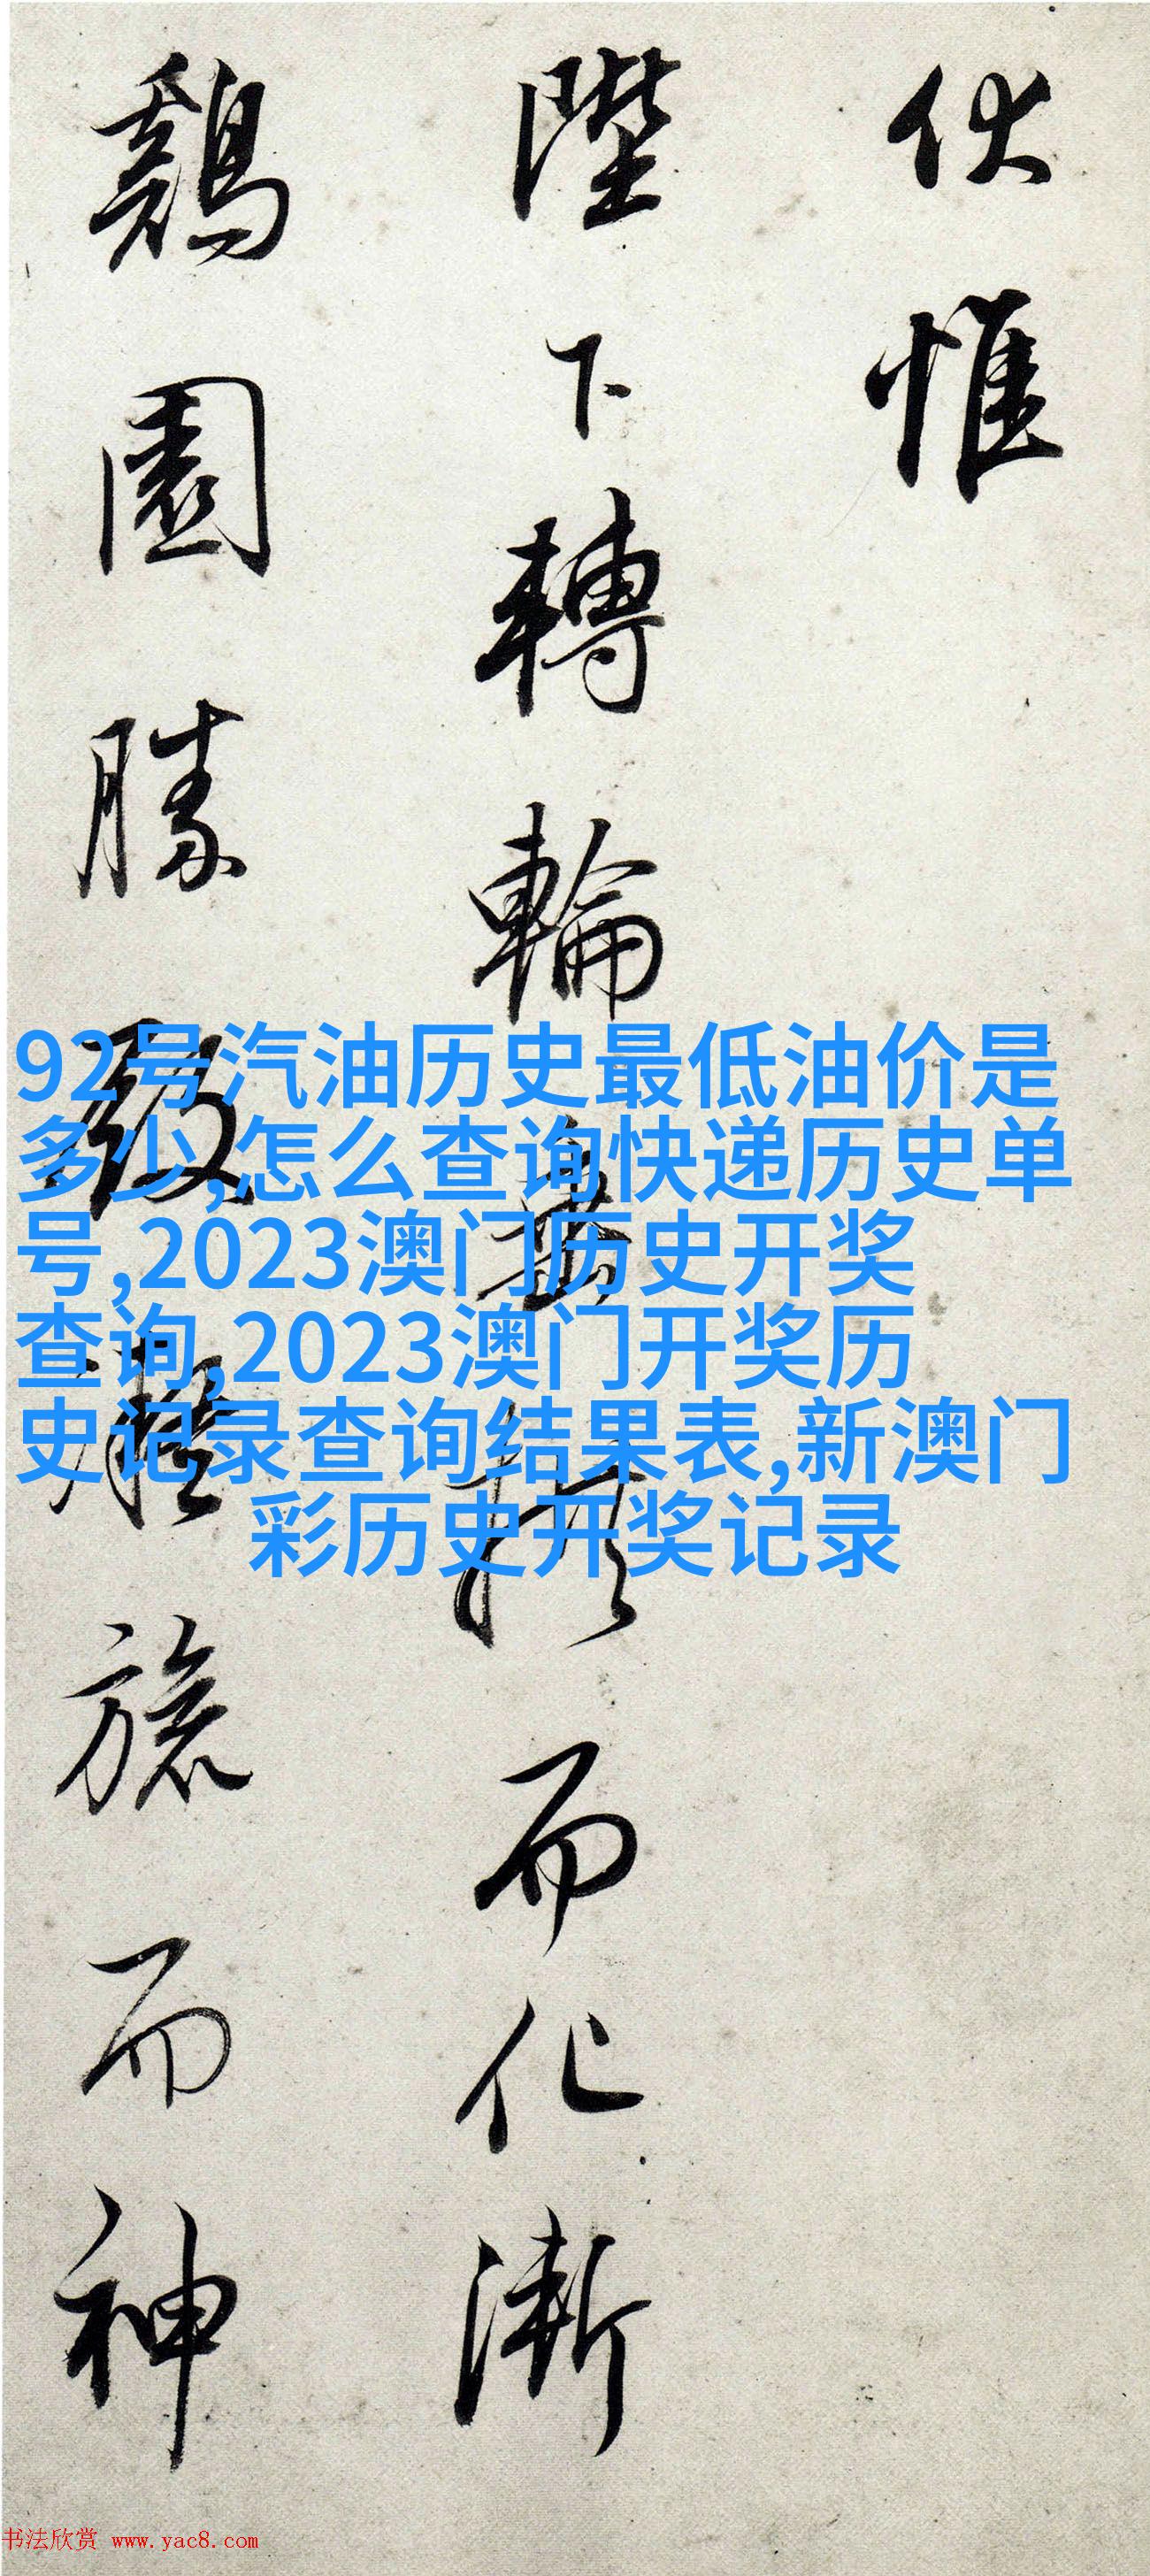 伏惟
陛下轉輪
而化漸
鷄園勝
旅而神
92号汽油历史最低油价是
多少,怎么查询快递历史单
号,2023澳门历史开奖
查询,2023澳门开奖历
史记录查询结果表,新澳门
彩历史开奖记录
书法欣赏 www.yac8.com